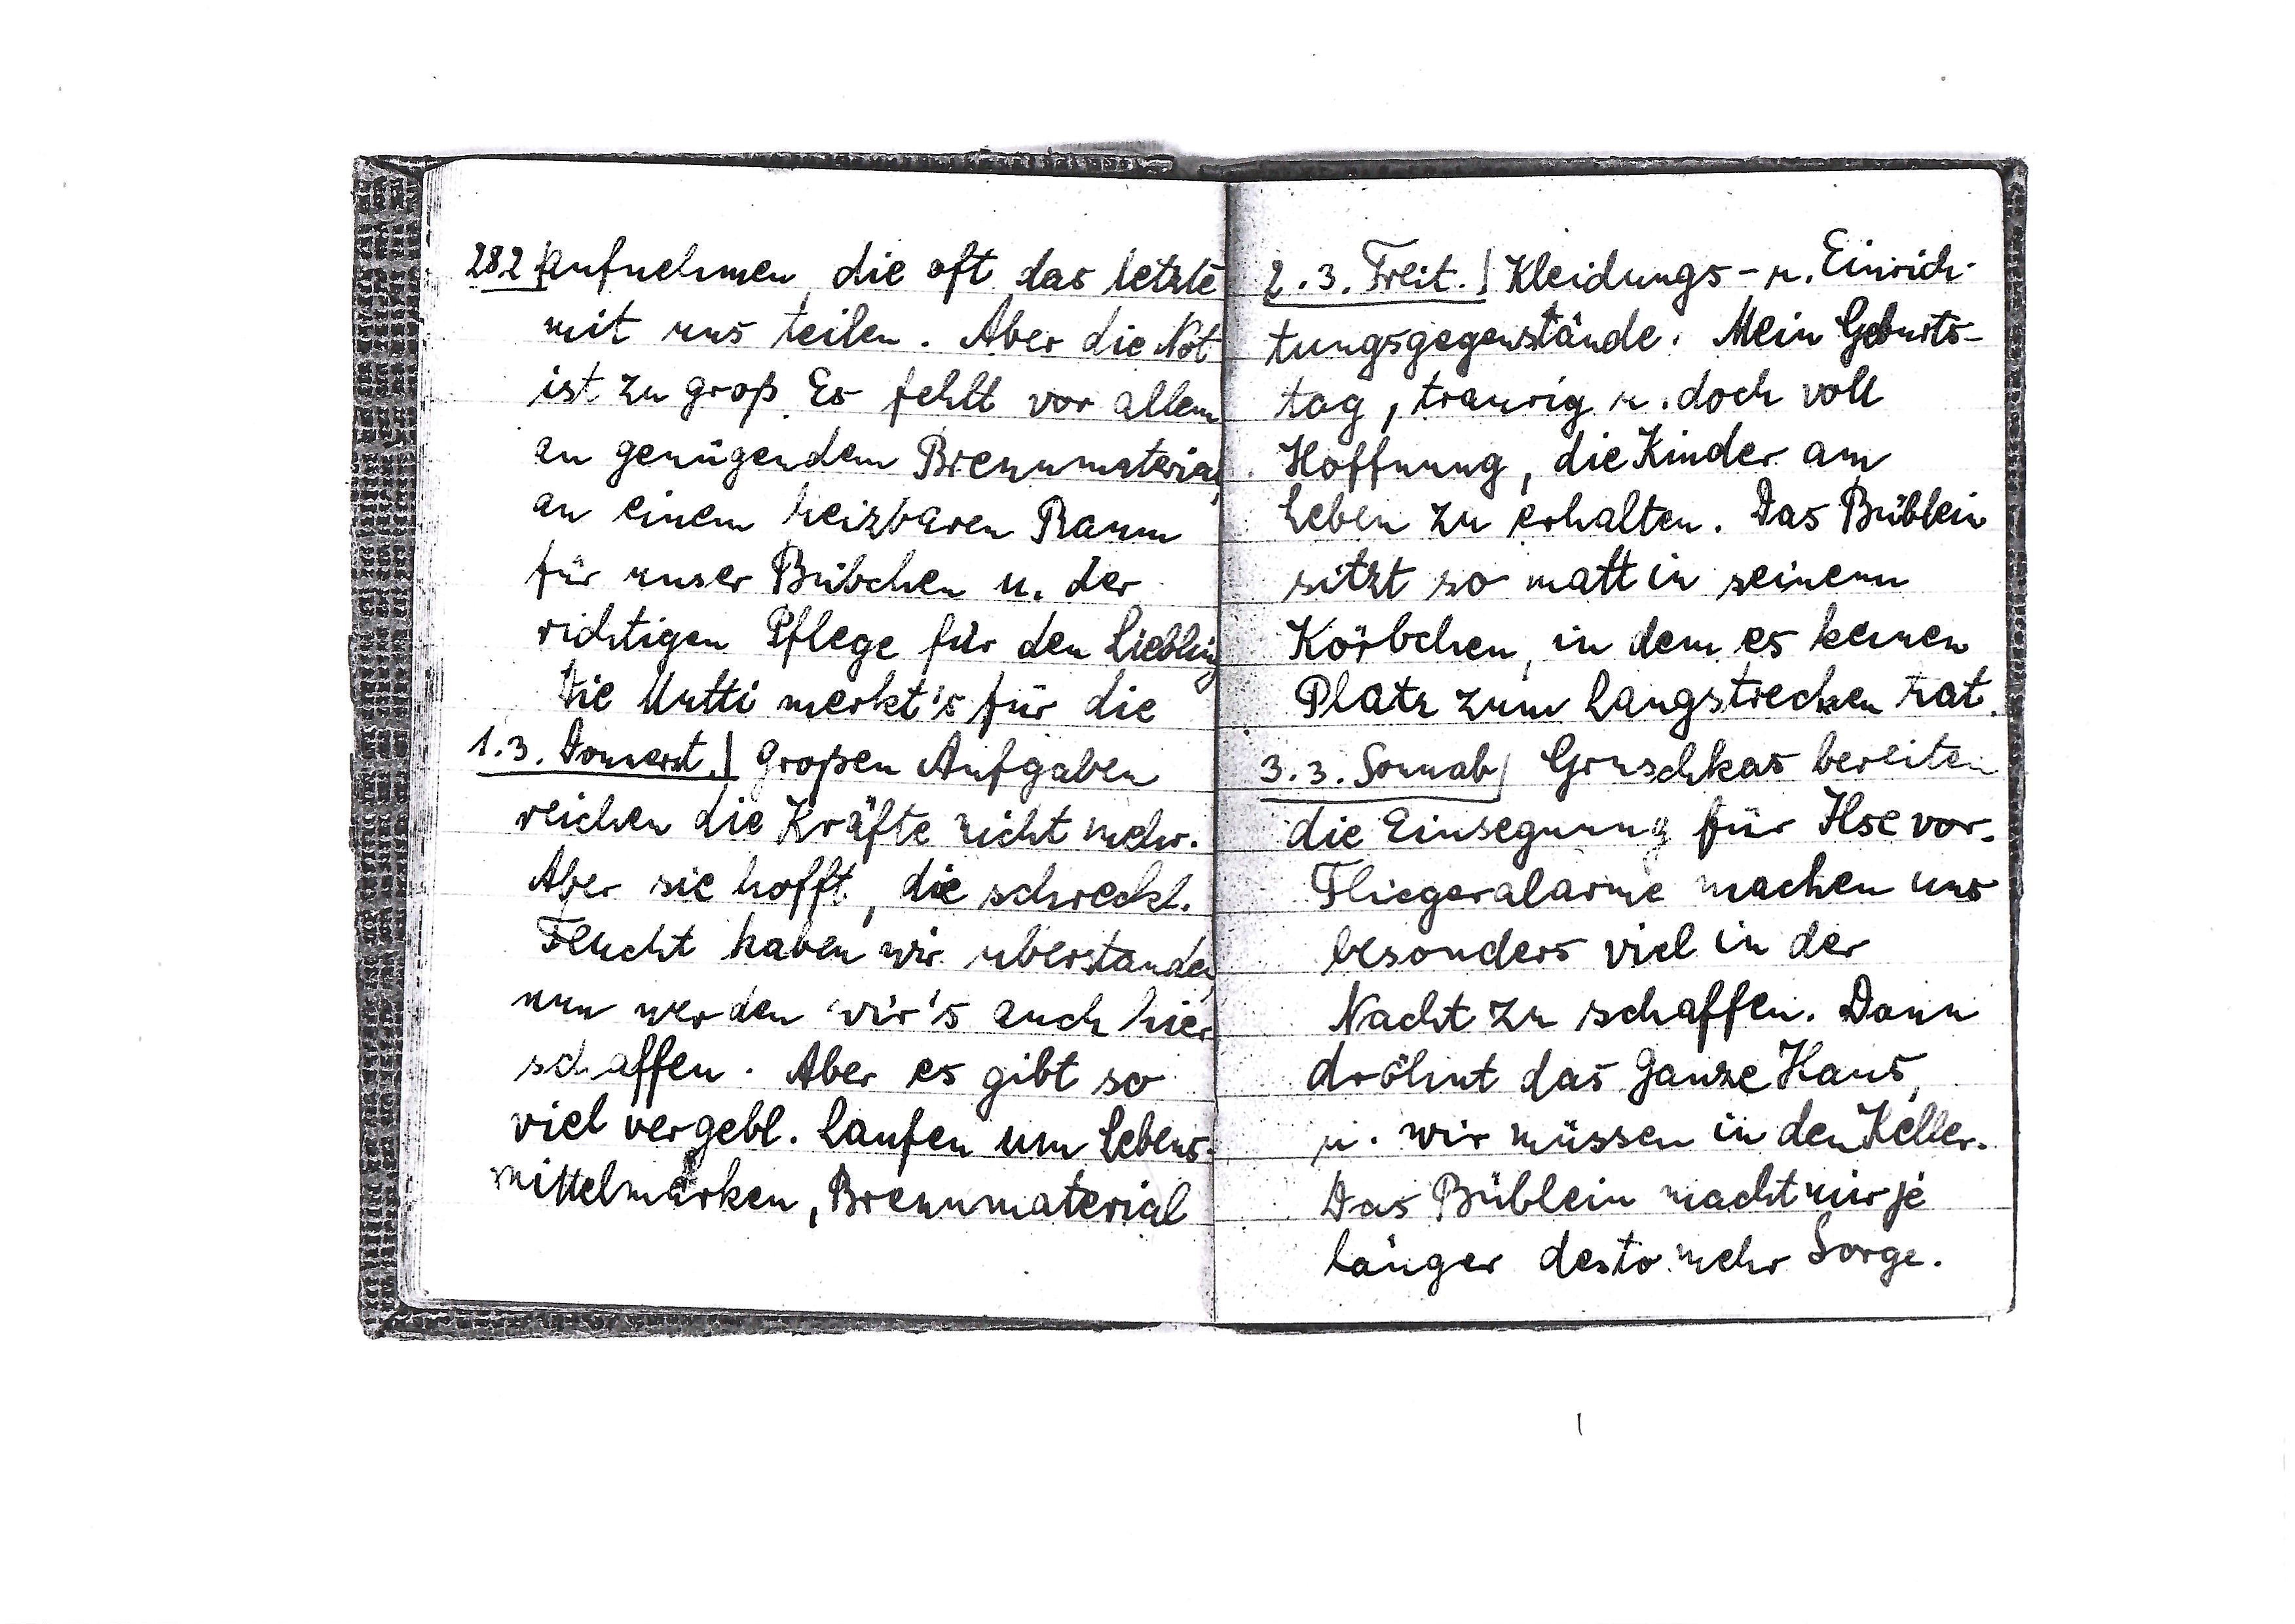 28.2. aufnehmen, die oft das letzte
mit uns teilen. Aber die Not
ist zu groß. Es fehlt vor allem
an genügendem Brennmaterial,
an einem heizbaren Raum
für unser Bübchen u. der
richtigen Pflege für den Liebling
Die Mutti merkt's für die
1.3. Donnerst. | großen Aufgaben
reichen die Kräfte nicht mehr.
Aber sie hofft, die schreckl.
Flucht haben wir überstanden,
nun werden wir's auch hier
schaffen. Aber es gibt so
viel vergebl. Laufen um Lebens-
mittelmarken, Brennmaterial
2.3. Freit. | Kleidungs- u. Einrich-
tungsgegenstände. Mein Geburts-
tag, traurig u. doch voll
Hoffnung, die Kinder am
Leben zu erhalten. Das Büblein
sitzt so matt in seinem
Körbchen, in dem es keinen
Platz zum Langstrecken hat.
3.3. Sonnab | Gruschkas bereiten
die Einsegnung für Ilse vor.
Fliegeralarme machen uns
besonders viel in der
Nacht zu schaffen. Dann
dröhnt das ganze Haus,
u. wir müssen in den Keller.
Das Büblein macht mir je
länger desto mehr Sorge.